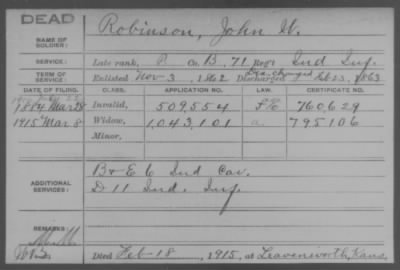 DEAD
NAME OF SOLDIER: Robinson, John W.
SERVICE: Late rank, P. Co. B, 71 Reg't Ind Inf.
TERM OF SERVICE: Enlisted Nov 3, 1862 Discharged Feb 23, 1863
DATE OF FILING. CLASS. APPLICATION NO. LAW. CERTIFICATE NO.
1884 Mar 28 Invalid, 509,554 760,629
1915 Mar 8 Widow, 1,043,101 a. 795106
Minor,
ADDITIONAL SERVICES: B & E 6 Ind Cav.
D 11 Ind. Inf.
REMARKS:
Died Feb-18, 1915, at Leavenworth, Kans.